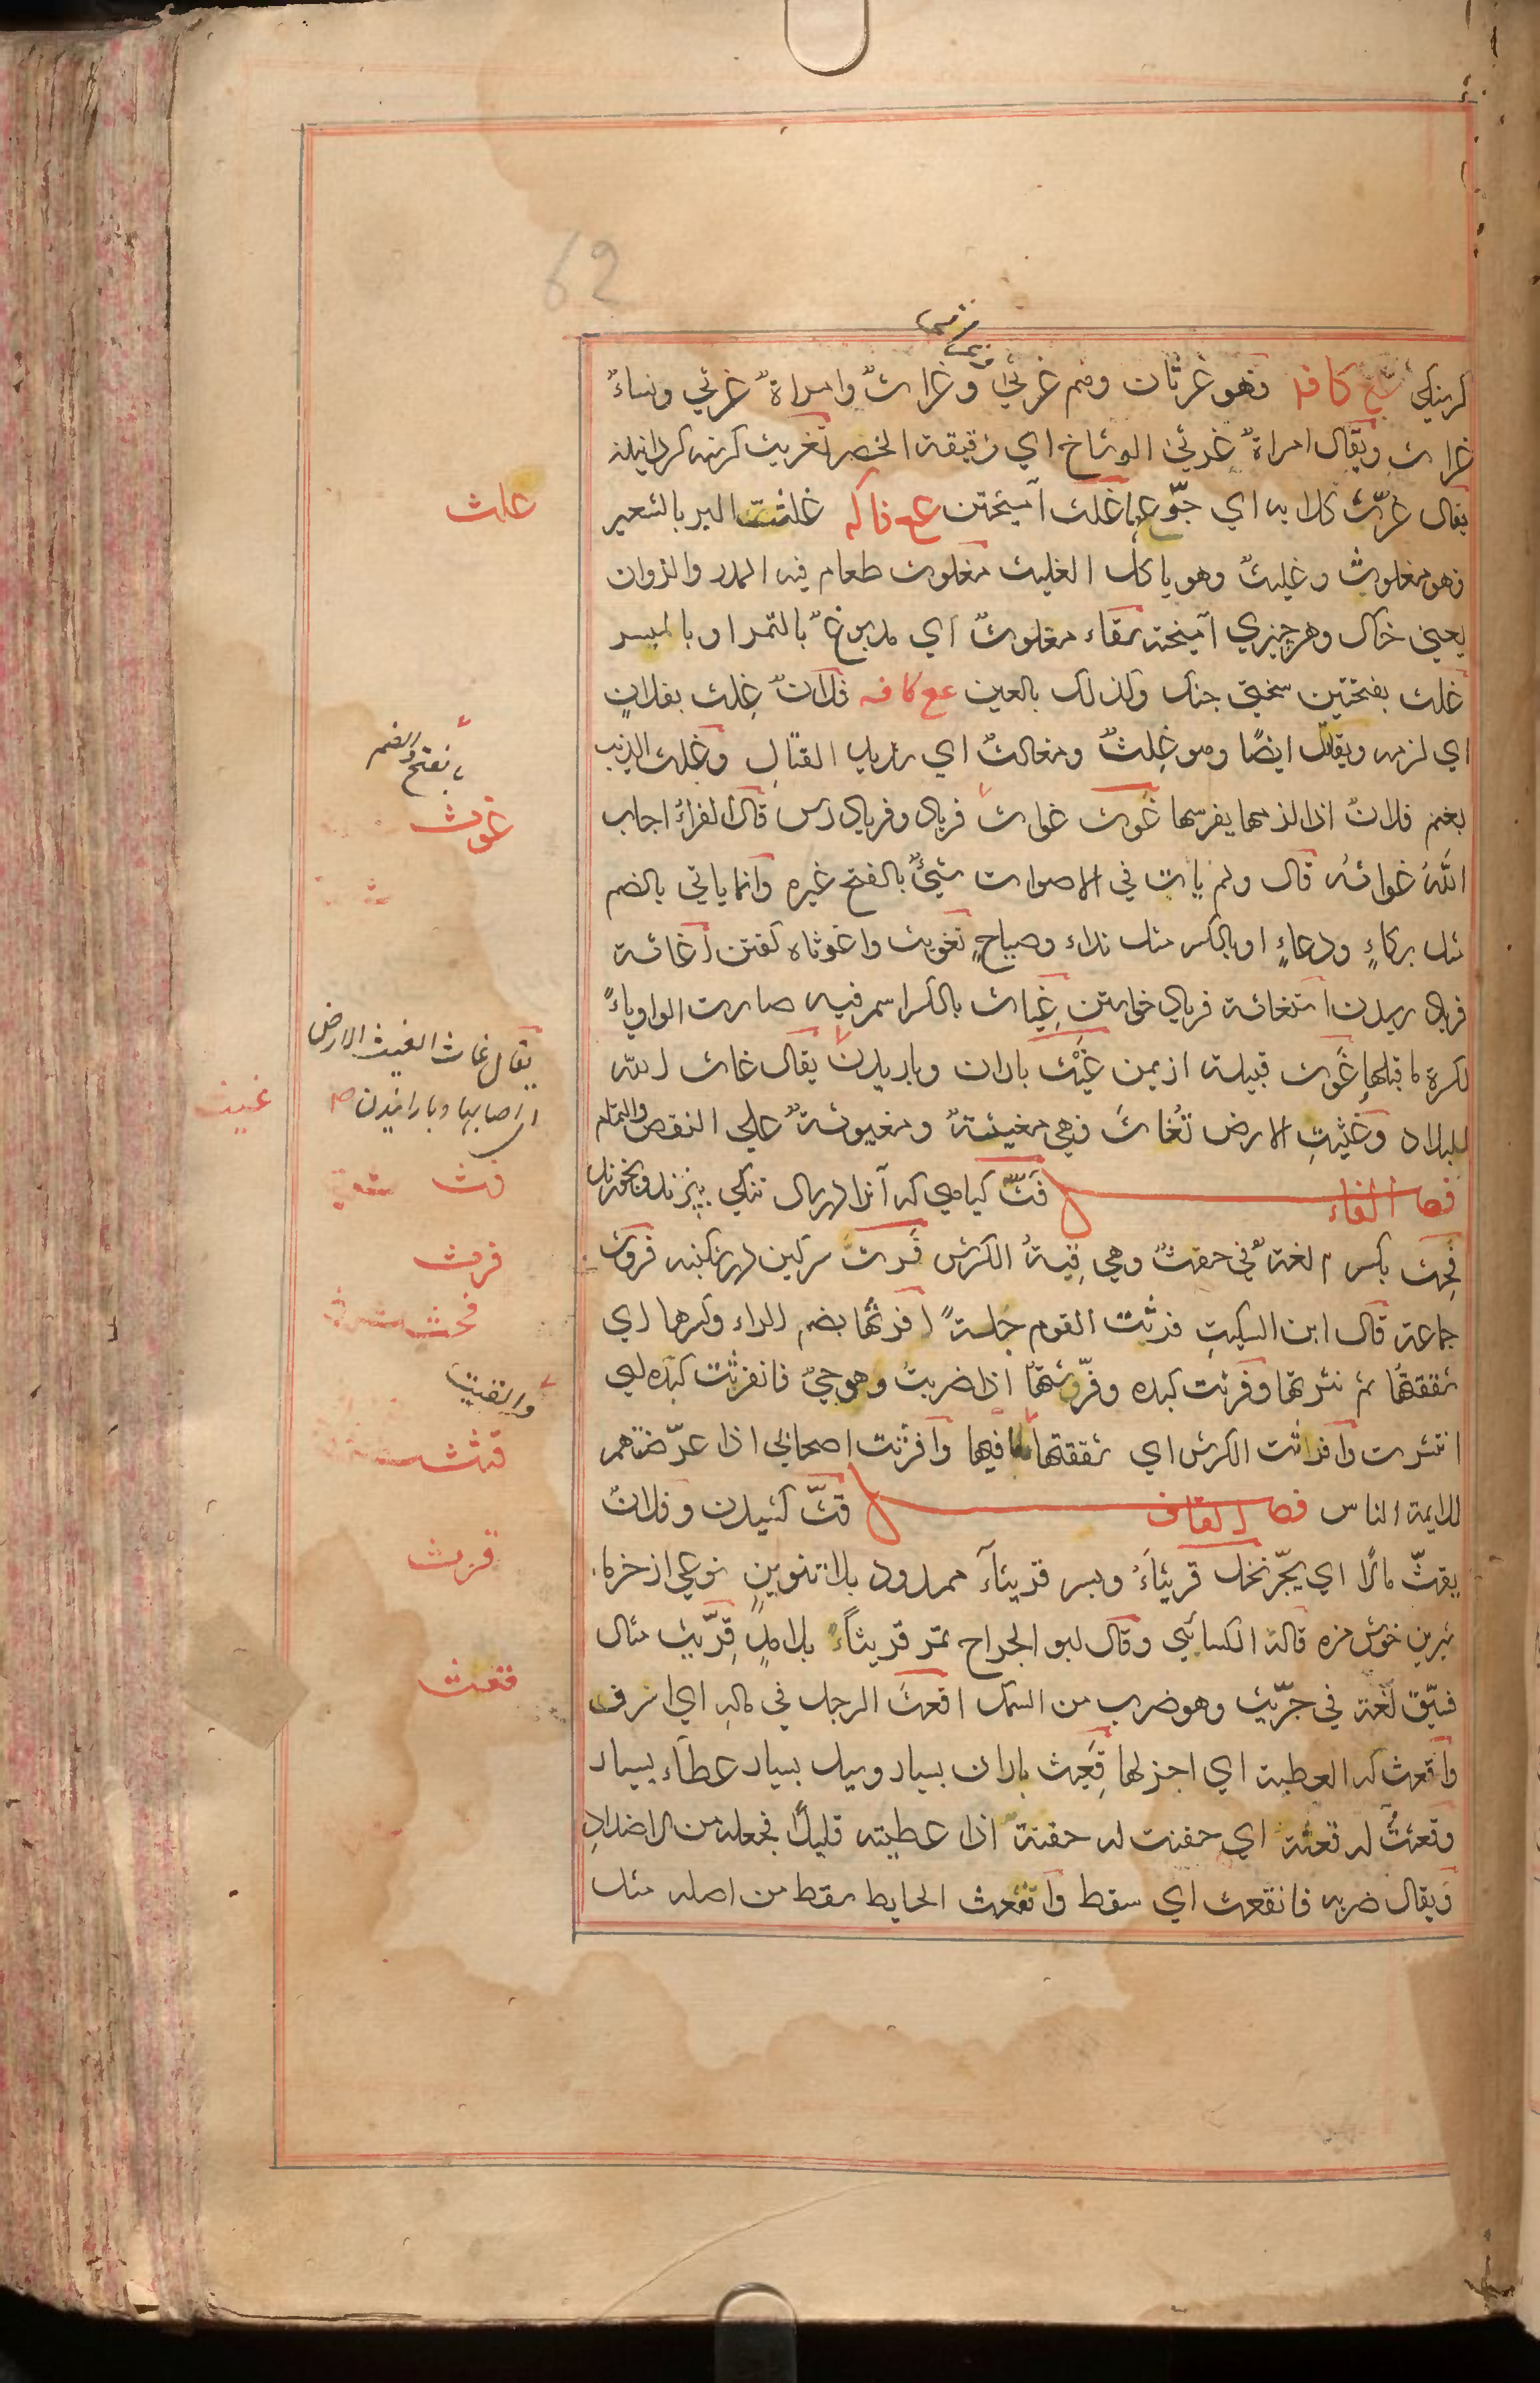 62
كرسنكى عع كافه فهو غرثان وهم غرثى وغراثٌ وامراةٌ غرثي ونساءٌ
غراث ويقال امراةٌ غرثي الوشاح اي دقيقة الخصر تغريث كرسنه كردانيدن
يقال غرّث كلابه اي جوّعها غلث آميختن عع فاكه غلثت البر بالشعير
فهو مغلوث وغليثٌ وهو ياكل الغليث مغلوث طعام فيه المدر والزوان
يعني خاك وهر چيزي آميخته سقاء مغلوثٌ اي مدبوغٌ بالتمر او بالبسر
غلث بفتحتين سختى جنك وكذلك بالعين عع كافه فلانٌ غلث بفلانٍ
اي لزمه ويقاتل ايضًا وهو غلثٌ ومغالثٌ اي شديد القتال وغلث الذيب
بغنم فلانٌ اذا لزمها يفرسها غوث غواث فرياد وفرياد رس قال الفراءُ اجاب
اللّهُ غواثهُ قال ولم يات في الاصوات شيئٌ بالفتح غيره وانما ياتي بالضم
مثل بكاءٍ ودعاءٍ او بالكسر مثل نداء وصياحٍ تغويث واغوثاه كفتن اغاثة
فرياد رسيدن استغاثه فرياد خواستن غياث بالكسر اسم فيه صارت الواو ياءً
لكسرة ما قبلها غوث قبيلة از يمن غَيْث باران وباريدن يقال غاث اللّه
البلاد وغيثتِ الارض تُغاثَ فهي مغيثةٌ ومغيوثةٌ علي النقص والتمام
فصل الفاء فَثّ كياهي كه آنرا در سال تنكى بپزند وبخورند
فَحِث بكسر م لغةٌ في حفثٌ وهي قبةُ الكرش فَرثَ سركين در شكنبه فروث
جماعة قال ابن السكيتِ فرثت القوم جلةً افرثها بضم الراء وكسرها اي
شققتها ثم نثرتها وفرثت كبده وفرّثتها اذا ضربتُ وهو حيٌّ فانفرثت كبده اي
انتثرت وافرثت الكرش اي شققتها ما فيها وافرثت اصحابي اذا عرّضتهم
للايمة الناس فصل القاف قثّ كشيدن وفلانٌ
يقثّ مالًا اي يجرّ نخل قريثاءَ وبسر قريثآء ممدود بلا تنوين نوعى از خرما
شيرين خوش مزه قالهُ الكسائي وقال ابو الجراح تمر قريثاءً بلا مدٍ قِرّيث مثال
فسّيق لغة في جرّيث وهو ضرب من السمك اقعثَ الرجل في مالهِ اي اسرف
واقعث له العطية اي اجزلها قَعيث باران بسيار وسيل بسيار عطاء بسيار
وقعثتُ له قعثةً اي حفنت له حفنةً اذا عطيته قليلًا فجعله من الاضدادِ
ويقال ضربه فانقعث اي سقط وانقعث الحايط سقط من اصله مثل
علث
بالفتح والضم
غوث
يقال غاث الغيث الارض
اي اصابها وبارانيدن ص
غيث
فث
فرث
فحث
والقيت
قثث
قرث
قعث